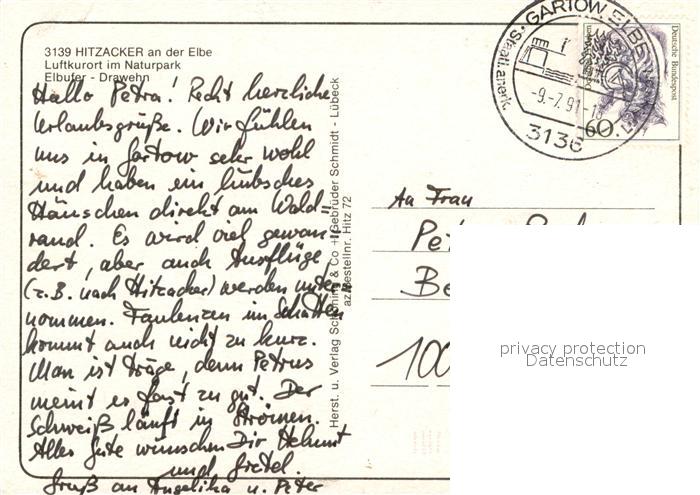 3139 HITZACKER an der Elbe
Luftkurort im Naturpark
Elbufer - Drawehn
Hallo Petra! Recht herzliche
Urlaubsgrüße. Wir fühlen
uns in Gartow sehr wohl
und haben ein hübsches
Häuschen direkt am Wald-
rand. Es wird viel gewan-
dert, aber auch Ausflüge
(z.B. nach Hitzacker) werden unter-
nommen. Faulenzen im Schatten
kommt auch nicht zu kurz.
Man ist träge, denn Petrus
meint es fast zu gut. Der
Schweiß läuft in Strömen.
Alles Gute wünschen Dir Helmut
und Gretel.
Gruß an Angelika u. Peter
Herst. u. Verlag Schöning & Co + Gebrüder Schmidt - Lübeck
az Bestellnr. Hitz 72
GARTOW ELBE
-9.-7.91-
3136
Deutsche Bundespost
60
An Frau
100
privacy protection
Datenschutz